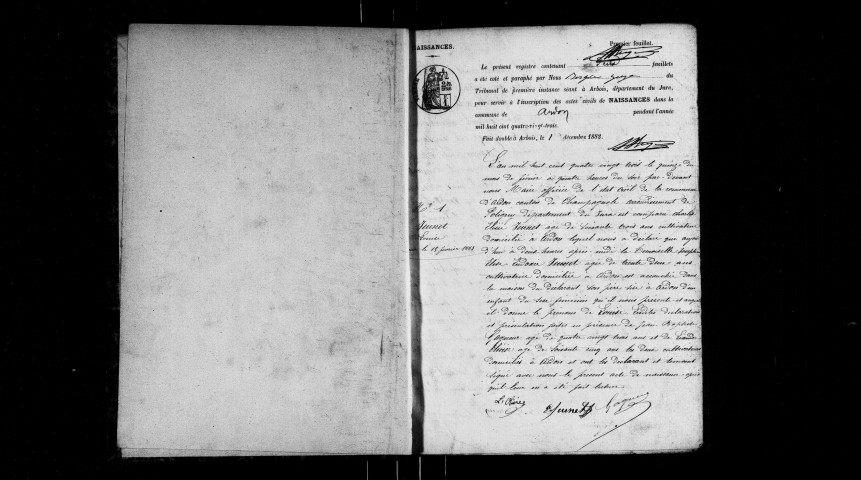 NAISSANCES.
Premier feuillet.
Le présent registre contenant feuillets
a été coté et paraphé par Nous du
Tribunal de première instance séant à Arbois, département du Jura,
pour servir à l'inscription des actes civils de NAISSANCES dans la
commune de Ardon pendant l'année
mil huit cent quatre-vingt-trois.
Fait double à Arbois, le 1 décembre 1882.
N° 1
Junet
Louise
le 15 février 1883
L'an mil huit cent quatre vingt trois le quinze du
mois de février à quatre heures du soir par devant
nous Maire officier de l'état civil de la commune
d'Ardon canton de Champagnole arrondissement de
Poligny département du Jura est comparu
Junet age de soixante trois ans cultivateur
domicilié à Ardon lequel nous a déclaré que aujour
d'hui à deux heures après midi la Demoiselle Joséphine
Elise Junet agée de trente deux ans
cultivatrice domiciliée à Ardon est accouchée dans
la maison du déclarant son père sise à Ardon d'un
enfant du sexe féminin qu'il nous présente et auquel
il donne le prénom de Louise. Lesdites déclaration
et présentation faites en présence de Jean Baptiste
age de quatre vingt trois ans et de
age de soixante cinq ans les deux cultivateurs
domiciliés à Ardon et ont les déclarant et témoins
signé avec nous le présent acte de naissance après
qu'il leur en a été fait lecture.
Junet